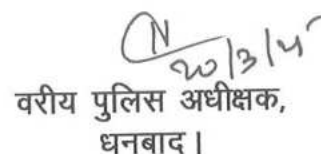 20/3/25
वरीय पुलिस अधीक्षक,
धनबाद।